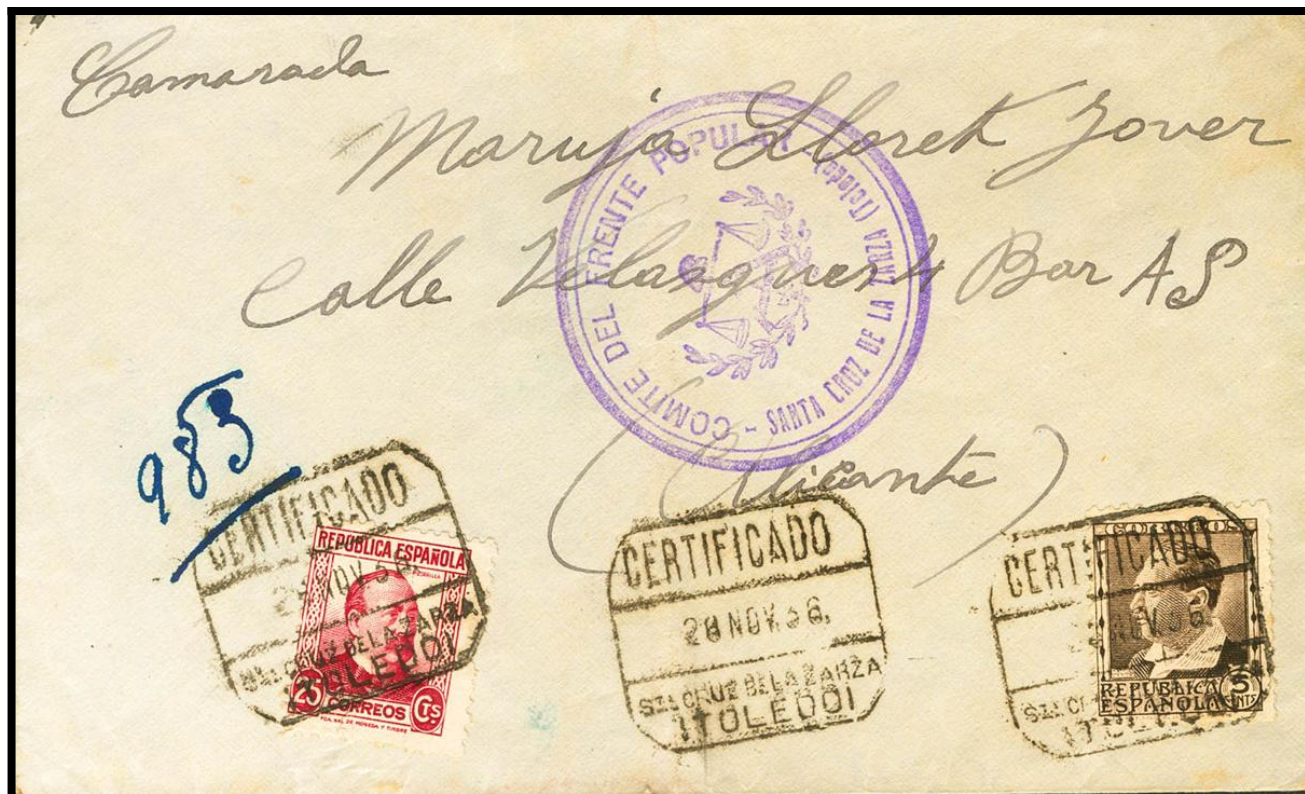 Camarada
Maruja Lloret Jover
Calle Velasquez 4 Bar AS
(Alicante)
COMITE DEL FRENTE POPULAR - (Toledo)
- SANTA CRUZ DE LA ZARZA
983
CERTIFICADO
NOV 36.
CRUZ DE LA ZARZA
TOLEDO
REPUBLICA ESPAÑOLA
25 CORREOS Cts
CERTIFICADO
28 NOV. 36.
STA CRUZ DE LA ZARZA
TOLEDO
CERTIFICADO
NOV 36
CORREOS
REPUBLICA
ESPAÑOLA
5